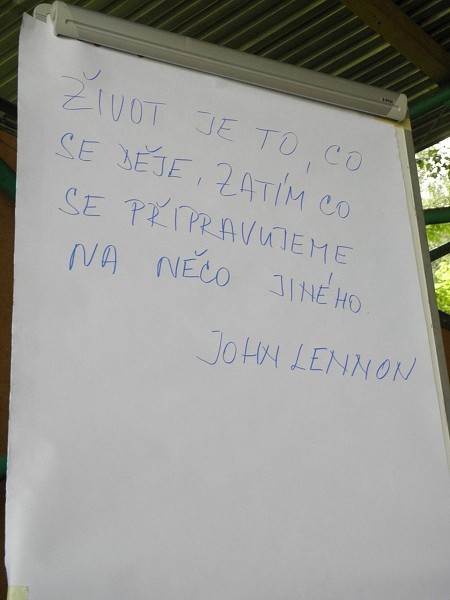 ŽIVOT JE TO, CO
SE DĚJE, ZATÍM CO
SE PŘIPRAVUJEME
NA NĚČO JINÉHO.
JOHN LENNON